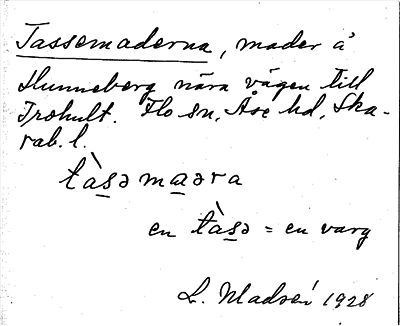 Tassemaderna, mader å
Hunneberg nära vägen till
Trohult. Flo sn, Åse hd, Ska-
rab. l.
tàsəmaəra
en tàsə = en varg
L. Madsén 1928